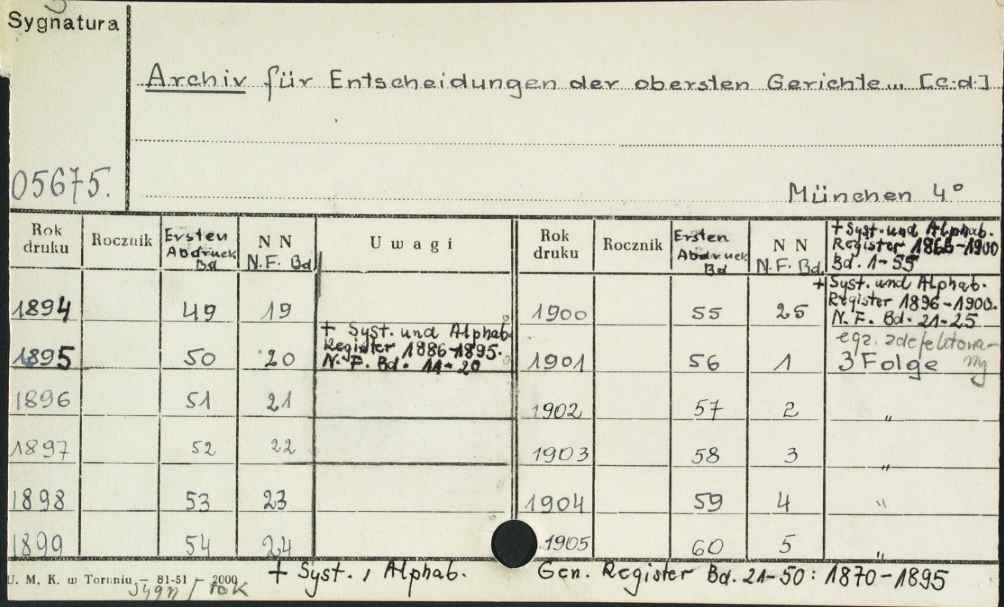 Sygnatura
Archiv für Entscheidungen der obersten Gerichte... [c.d.]
05675.
München 4°
Rok druku Rocznik Ersten Abdruck Bd NN N.F. Bd Uwagi Rok druku Rocznik Ersten Abdruck Bd NN N.F. Bd. + Syst. und Alphab. Register 1866-1900 Bd. 1-55
1894 49 19 1900 55 25 + Syst. und Alphab. Register 1896-1900. N.F. Bd. 21-25
1895 50 20 + Syst. und Alphab. Register 1886-1895. N.F. Bd. 11-20 1901 56 1 egz. zdefektowany 3 Folge
1896 51 21 1902 57 2 "
1897 52 22 1903 58 3 "
1898 53 23 1904 59 4 "
1899 54 24 1905 60 5 "
+ Syst., Alphab. Gen. Register Bd. 21-50: 1870-1895
U. M. K. w Toruniu — 81-51 / 2000
sygn / rok